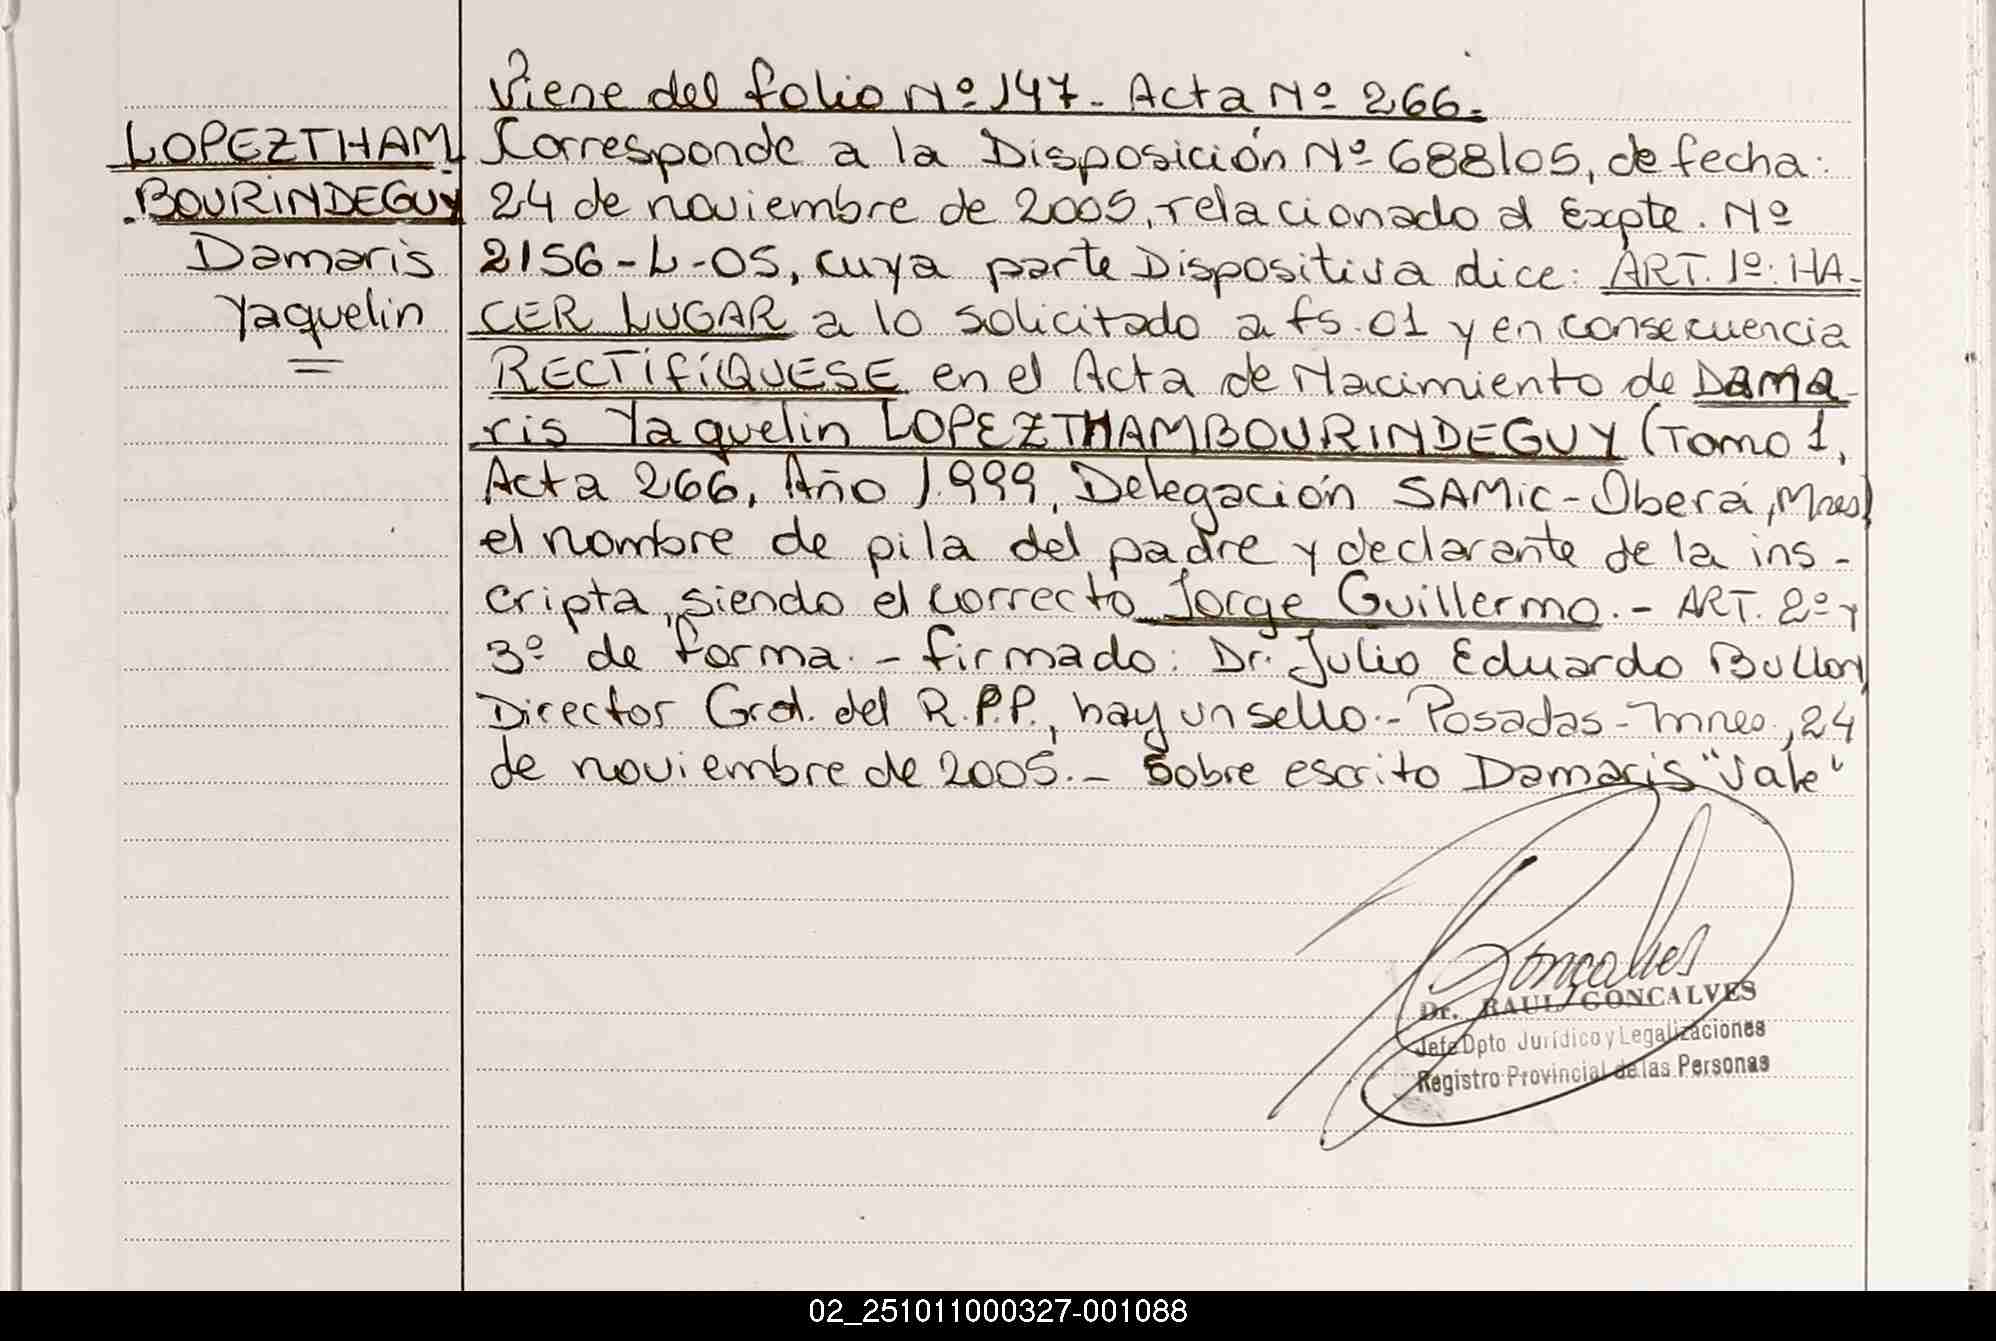 Viene del folio Nº 147- Acta Nº 266.
LOPEZTHAM
BOURINDEGUY
Damaris
Yaquelin
Corresponde a la Disposición Nº 688/05, de fecha:
24 de noviembre de 2005, relacionado al Expte. Nº
2156-L-05, cuya parte Dispositiva dice: ART. 1º: HA-
CER LUGAR a lo solicitado a fs. 01 y en consecuencia
RECTIFÍQUESE en el Acta de Nacimiento de Dama-
ris Yaquelin LOPEZTHAMBOURINDEGUY (Tomo 1,
Acta 266, Año 1.999, Delegación SAMIC-Oberá, Mnes)
el nombre de pila del padre y declarante de la ins-
cripta, siendo el correcto Jorge Guillermo.- ART. 2º y
3º de forma.- firmado: Dr. Julio Eduardo Bullon
Director Gral. del R.P.P., hay un sello.- Posadas-Mnes., 24
de noviembre de 2005.- Sobre escrito Damaris "Vale"
Goncalves
Dr. RAUL GONCALVES
Jefe Dpto Jurídico y Legalizaciones
Registro Provincial de las Personas
02_251011000327-001088